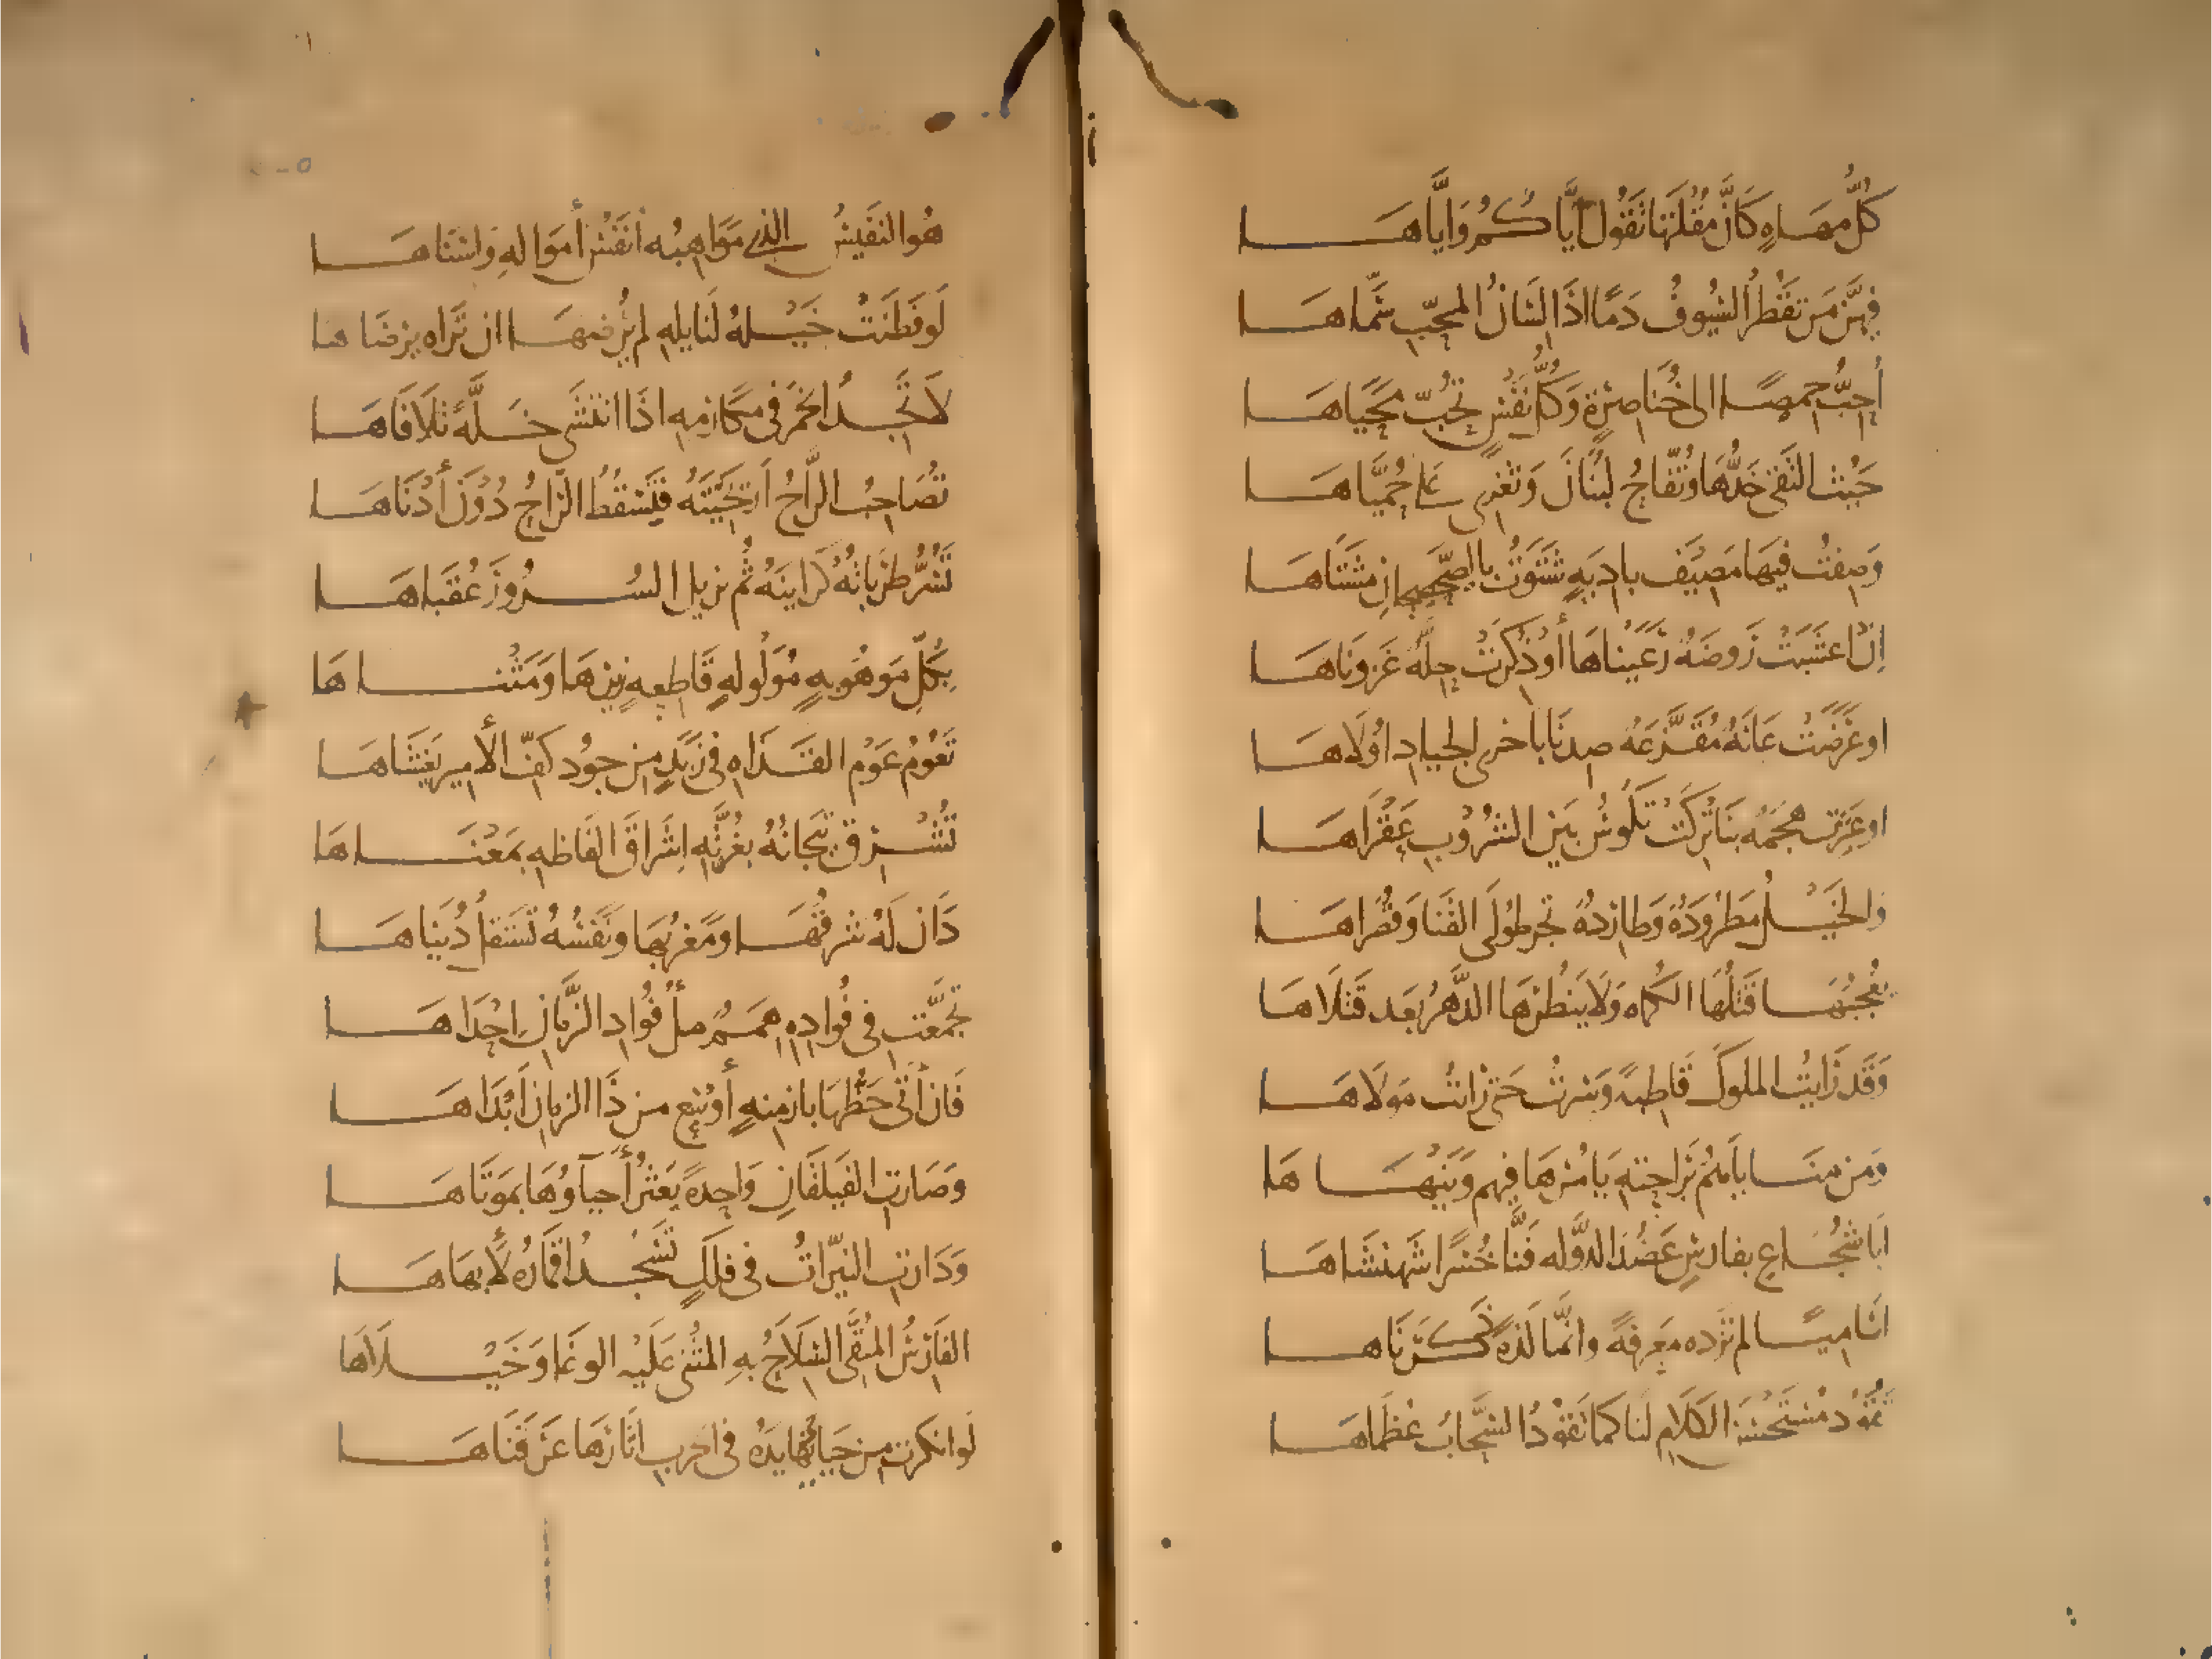 كُلُّ مهَاهٍ كَانَّ مُقْلَتَها تَقُولُ ايَّاكُمُ وَايَّاهَا
فِيهِنَّ مَن تَقْطُرُ السُيُوفُ دَمًا اذَا لِسَانُ المحِبِّ سَمَّاهَا
أُحِبُّ حِمصًا الى خُنَاصِرةٍ وَكُلُّ نَفْسٍ تُحبُّ مَحَيَاهَا
حَيْثُ التَقَى خَدُّهَا وَتُفّاحُ لبْنَانَ وَثَغْرِى عَلَى حُمَيَّاهَا
وَصِفتُ فِيهَا مَصِيَف بادِيَهٍ شَتَوتُ بالصَّحصحانِ مَشتَاهَا
اِن اعشَبَتْ رَوضَهٌ رَعَيْنَاهَا أوذُكِرَتْ حِلَّهٌ غَزَونَاهَا
اوعَرَضَتْ عَانَهٌ مُقَزَّعَهٌ صِدنَا باخرى الجيادِ اوُلَاهَا
اوعَبَرَت هَجمَهٌ بنَا تُرِكَتْ تَكُوسُ بَينَ الشُرُوبِ عَقْرَاهَا
وَالخَيْلُ مَطْرُودَهٌ وَطارِدهٌ تجر طُولَى القَنَا وَقُصْرَاهَا
يُعْجِبُهَا قَتْلُهَا الكُماه وَلَا يُنْظِرُهَا الدَّهْرُ بَعَد قَتْلَاهَا
وَقَد رَايتُ الملوكَ قَاطِبهً وَسِرتُ حَتى رَايتُ مَولَاهَا
وَمَن مَنَايَاهُمُ بَرَاحتِهِ يَامُرُهَا فِيهم وَيَنْهَاهَا
اَبَا شُجَاعٍ بفارسٍ عَضُدَ الدَّوله فَنَّا خُسْرًا شَهنْشَاهَا
اسَامِيًا لم تزده مَعرِفةً وانَّمَا لَذهً ذَكَرنَاهَا
تَقُوْدُ مُسْتَحْسَنَ الكَلَامِ لَنَا كَمَا تَقُوْدُ السَّحَابَ عُظْمَاهَا
هُوالنَفيسُ الذى مَوَاهِبُه انَفَسُ أموَالهِ وَاسْنَاهَا
لَوفَطَنَتْ خَيْلهُ لنَايلهِ لم يُرضهَا ان تَراه يرضَاها
لَا تَجِدُ الخَمرُ فى مَكَارِمهِ اذَا انْتَشَى خَلَّهً تَلَافَاهَا
تُصَاحِبُ الرَّاحُ اَرْيَحِيَّتَهُ فَتَسْقُطُ الرَّاحُ دُوْنَ أدْنَاهَا
تَسُرُّ طَرَبَاتُهُ كَرَاينَهُ ثُم يزيل السُرُورَ عُقبَاهَا
بِكُلِّ مَوهُوبهٍ مُوَلْوِلهٍ قَاطِعهٍ زِيْرهَا وَمَثْنَاهَا
تَعُومُ عَوْمَ القَذَاهِ فى زَبَدٍ مِن جوُد كَفِّ الأمِيرِ يَغشَاهَا
تُشْرِق تِيجَانُهُ بغُرَّتِهِ اِشرَاقَ الفَاظهِ بمَعْنَاهَا
دَان لَهُ شرقُهَا ومَغربُهَا ونَفْسُهُ تَسْتقلُّ دُنيَاهَا
تَجَمَّعَت فى فُوادِهِ هِمَمٌ ملُّ فُوادِ الزَّمَانِ اِحْدَاهَا
فَان أَتَى حَظُّهَا بازمِنهٍ أوسَع من ذَا الزمَانِ اَبْدَاهَا
وَصَارت الفَيلَقَانِ وَاحِدهً تَعْثُرُ أحيَآوُهَا بمَوتَاهَا
وَدَارت النيِّرَاتُ فى فلكٍ تَسْجُدُ اقمَارُه لأبهَاهَا
الفَارِسُ المُتَّقَى السِلَاحُ بهِ المُثْنِى عَلَيْهِ الوغَا وَخَيْلَاهَا
لَوانكَرت مِن حَيائهَا يَدُهُ فى احَربِ اثَارَهَا عَرَفنَاهَا